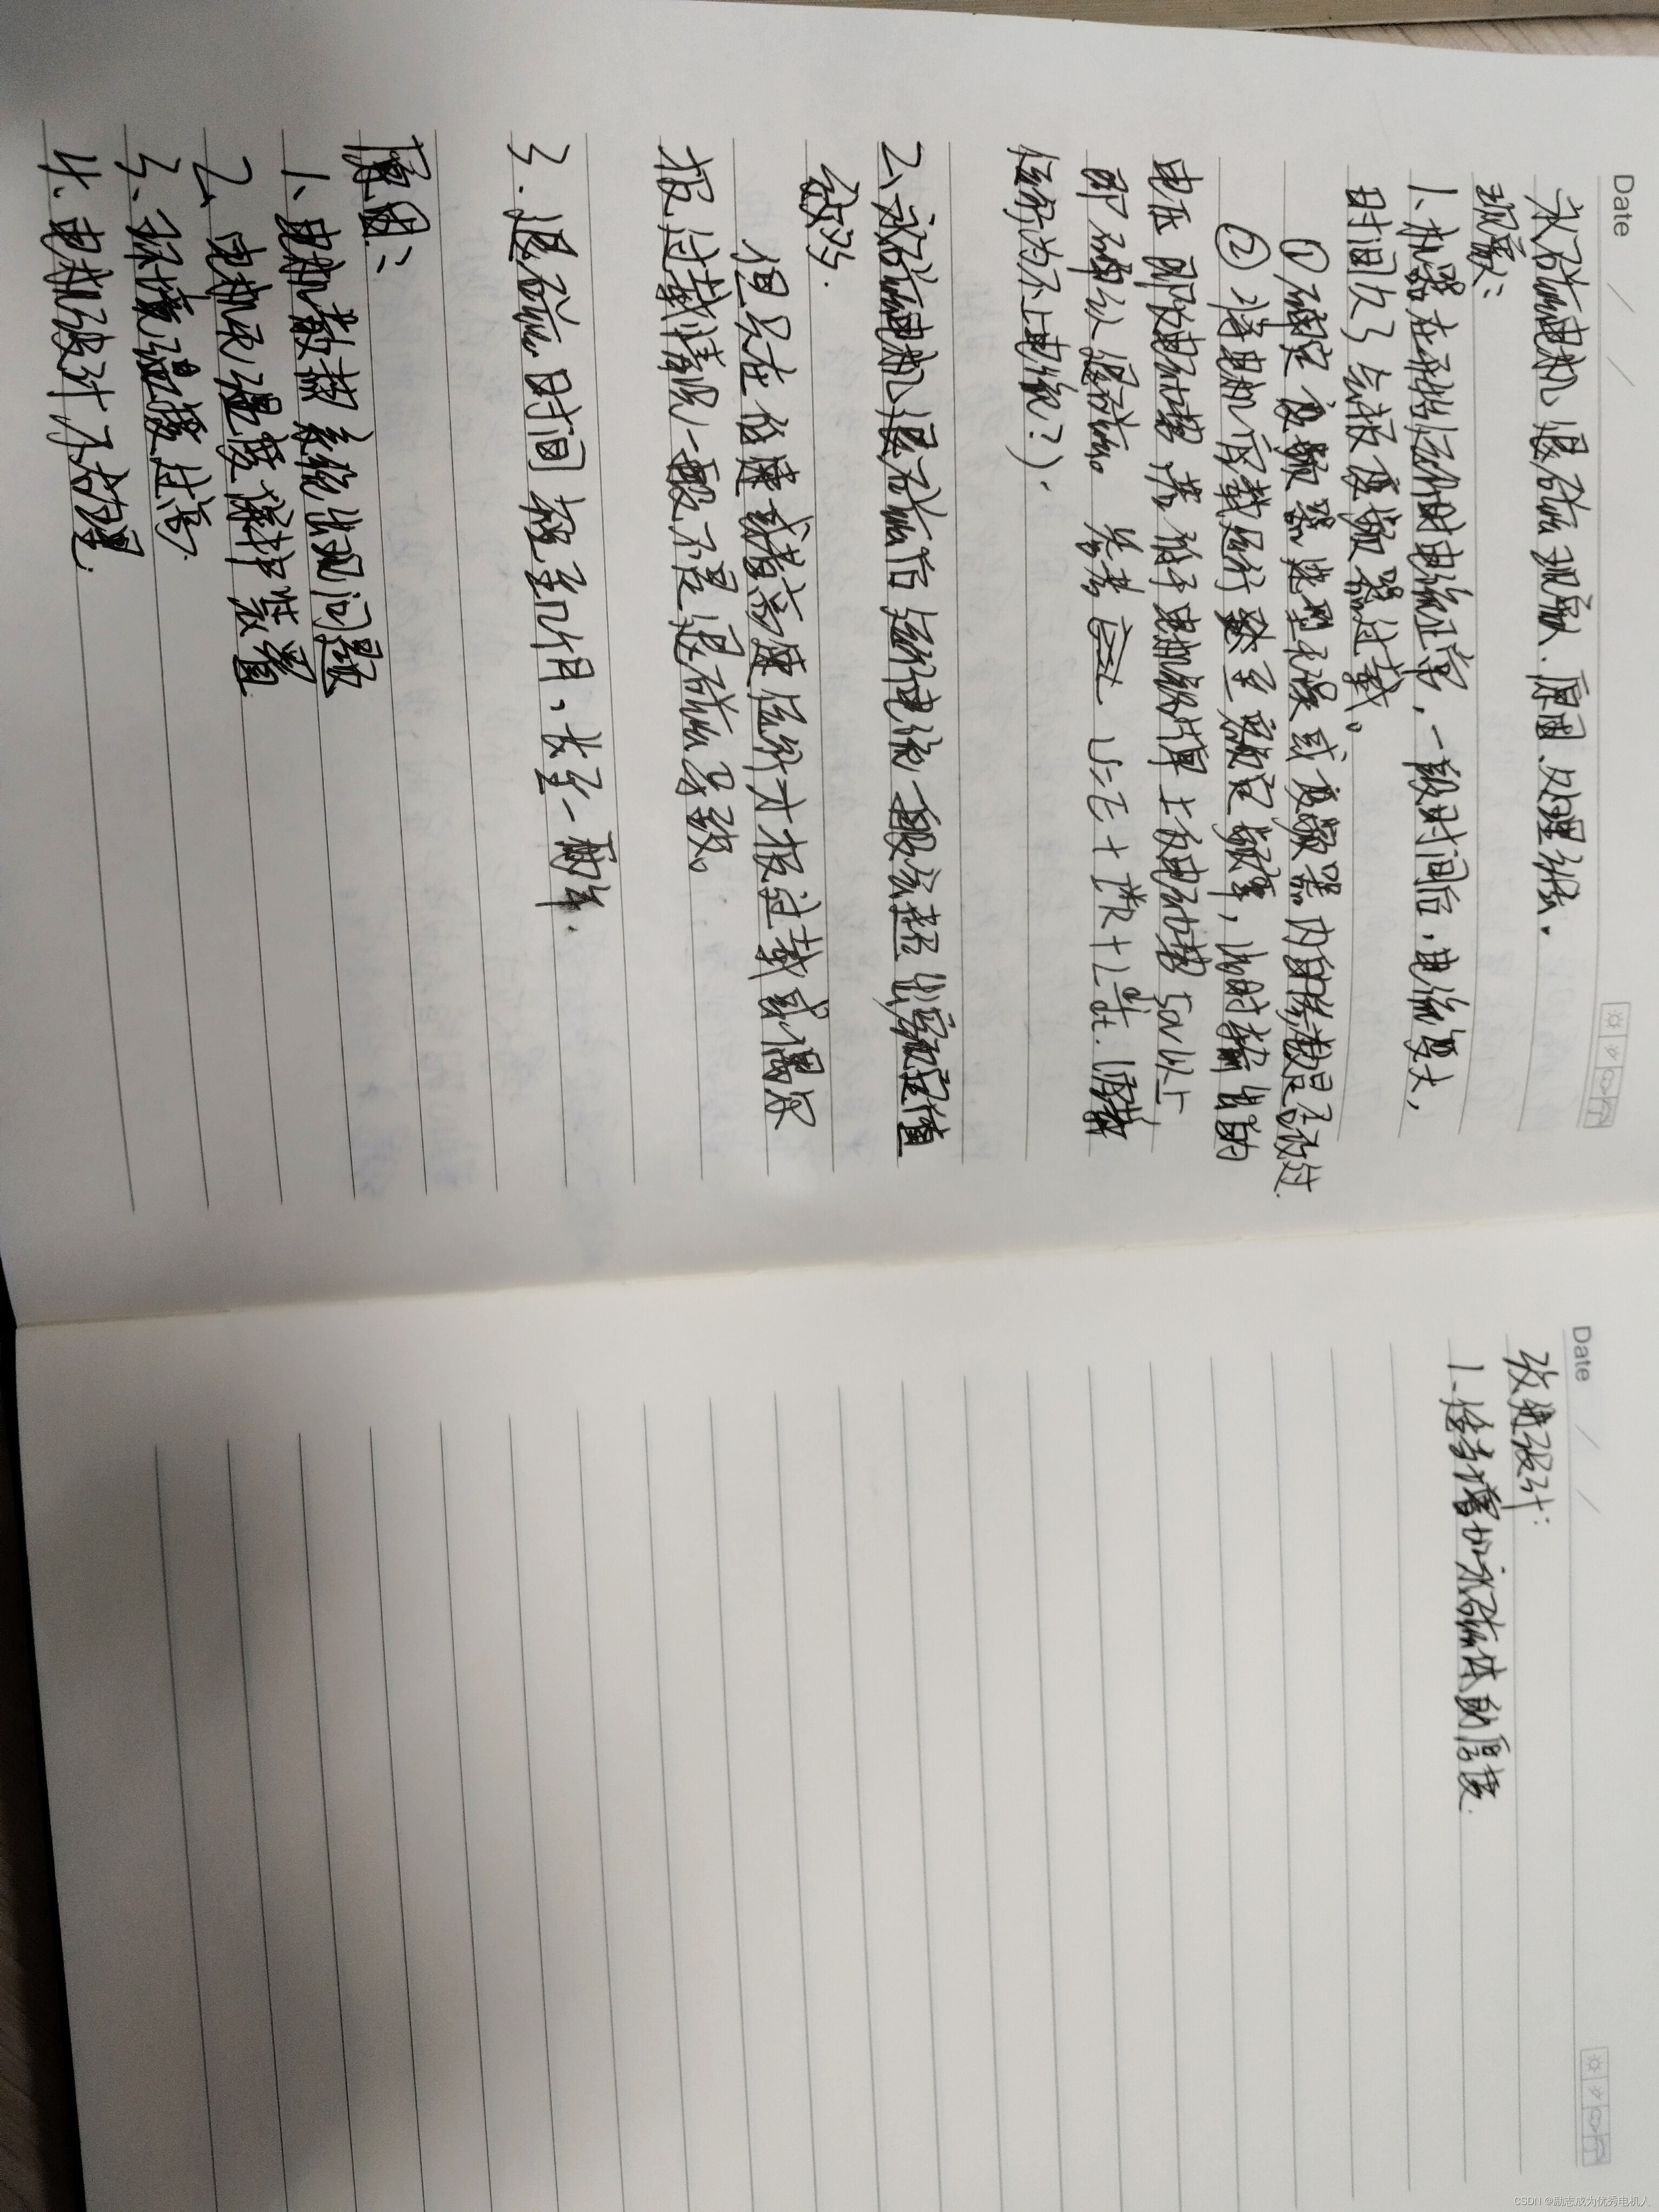 Date / /
永磁电机退磁现象.原因.处理继.
现象:
1.机器在刚运行时电流正常,一段时间后,电流变大,
时间久了会报变频器过载。
①确定变频器选型无误或变频器内参数是否改过.
②将电机空载运行至额定频率,此时输出的
电压 即反电动势 若低于电机铭牌上反电动势50V以上
即确认退磁。 U=E+IR+L di/dt.
运行为不上电流?).
2、永磁电机退磁后运行电流一般会超出额定值
较多.
但只在低速或者高速运行才报过载或偶尔
报过载情况一般不是退磁导致。
3.退磁时间 数至几个月、长至一两年.
原因:
1、电机散热系统出现问题
2、电机无温度保护装置
3、环境温度过高.
4.电机设计不合理.
Date / /
改进设计:
1.适当增加永磁体的厚度.
CSDN @励志成为优秀电机人